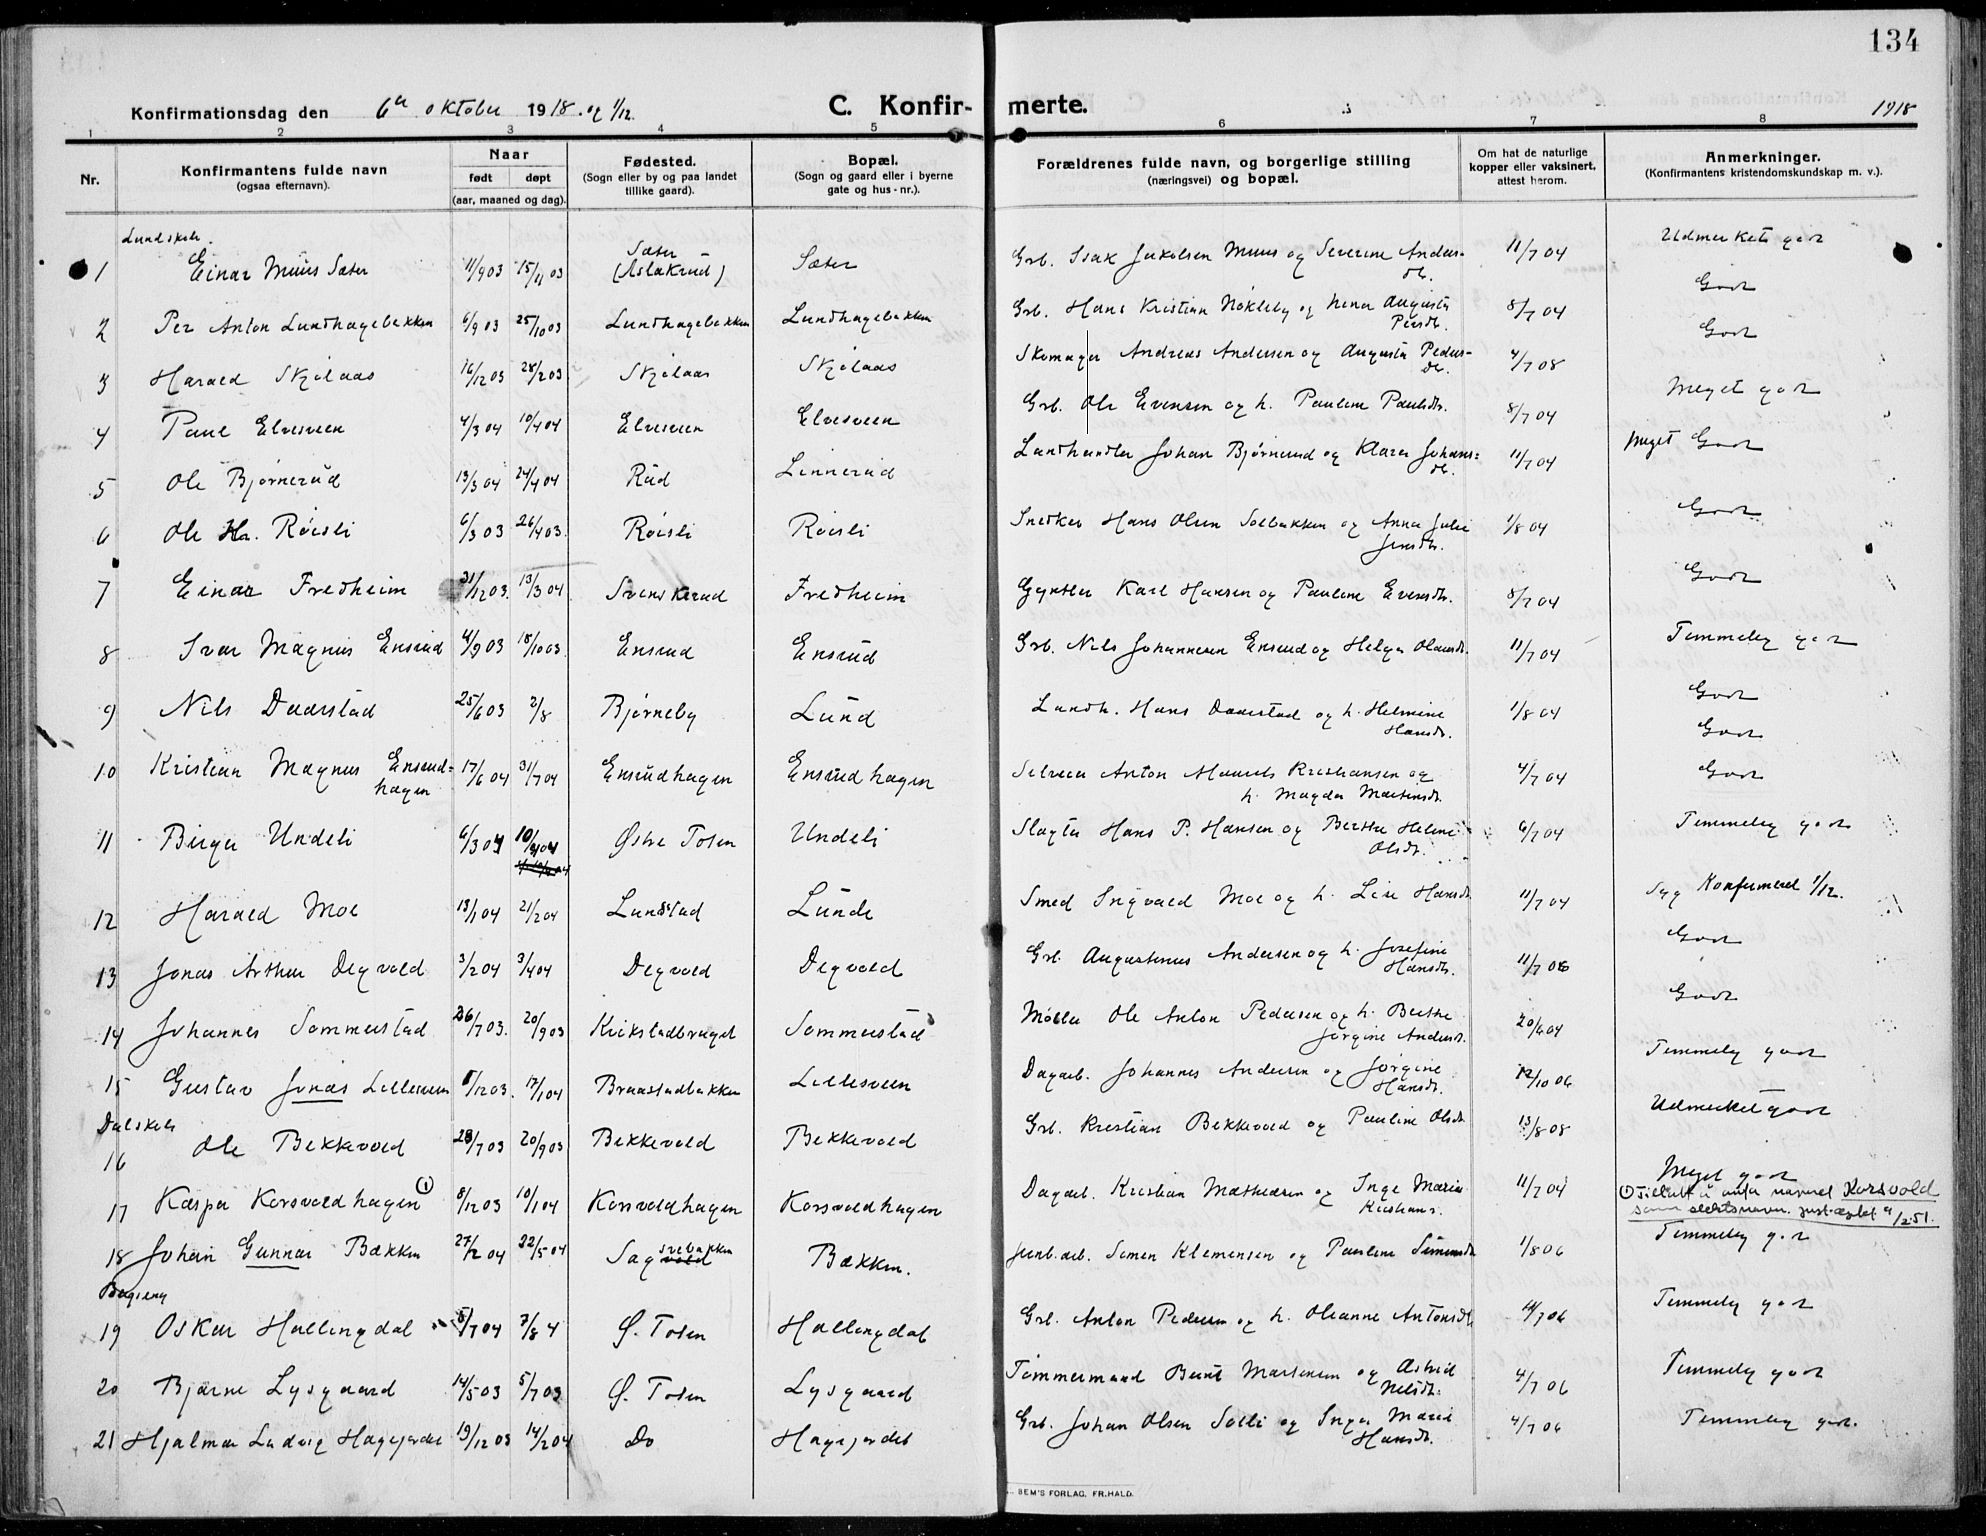 134
Konfirmationsdag den 6te oktober 1918. og 1/12.
C. Konfir-
merte.
1918
1 2 3 4 5 6 7 8
Nr.
Konfirmantens fulde navn
(ogsaa efternavn).
Naar
født døpt
(aar, maaned og dag).
Fødested.
(Sogn eller by og paa landet
tillike gaard).
Bopæl.
(Sogn og gaard eller i byerne
gate og hus-nr.).
Forældrenes fulde navn, og borgerlige stilling
(næringsvei) og bopæl.
Om hat de naturlige
kopper eller vaksinert,
attest herom.
Anmerkninger.
(Konfirmantens kristendomskundskap m. v.).
Lundskole.
1 Einar Muus Sæter 11/9 03 15/11 03 Sæter (Aslakrud) Sæter Grb. Isak Jakobsen Muus og Severine Anders- dt. 11/7 04 Udmerket godt
2 Per Anton Lundhagebakken 6/9 03 25/10 03 Lundhagebakken Lundhagebakken Grb. Hans Kristian Nøkleby og Augusta Persdt. 8/7 04 Godt
3 Harald Skjelaas 16/12 03 28/2 03 Skjelaas Skjelaas Skomager Andreas Andersen og Augusta Peders- dt. 4/7 08 Godt
4 Paul Elvesveen 4/3 04 10/4 04 Elvesveen Elvesveen Grb. Ole Evensen og h. Pauline Paulsdt. 8/7 04 Meget godt
5 Ole Bjørnerud 13/3 04 24/4 04 Rud Linnerud Landhandler Johan Bjørnerud og Klara Johans- dt. 11/7 04 Meget Godt
6 Ole Kr. Røisli 6/3 03 26/4 03. Røisli Røisli Snedker Hans Olsen Solbakken og Anna Julie Jensdt. 1/8 04 Godt
7 Einar Fredheim 21/12 03. 13/3 04 Svenskerud Fredheim Gjørtler Karl Hansen og Pauline Evensdt. 8/7 04 Godt
8 Ivar Magnus Ensrud 4/9 03 18/10 03. Ensrud Ensrud Grb. Nils Johannesen Ensrud og Helga Olausdt. 11/7 04 Temmelig godt
9 Nils Daarstad 25/6 03 2/8 Bjørneby Lund Landh. Hans Daarstad og h. Helmine Hansdt. 1/8 04 Godt
Godt
10 Kristian Magnus Ensrud- hagen 17/6 04 31/7 04 Ensrudhagen Ensrudhagen Selveier Anton Mauritz Kristiansen og h. Magda Martinsdt. 4/7 04 Godt
11 Birger Undeli 6/3 04 10/4 04 Østre Toten Undeli Slagter Hans P. Hansen og Berthe Heline Olsdt. 6/7 04 Temmelig godt
12 Harald Moe 13/1 04 21/2 04 Lundstad Lunde Smed Ingvald Moe og h. Lise Hansdt 11/7 04 Syg Konfirmeret 1/12.
13 Jonas Arthur Degvold 3/2 04 3/4 04 Degvold Degvold Grb. Augustinus Andersen og h. Josefine Hansdt. 11/7 06 Godt
14 Johannes Sommerstad 26/7 03. 20/9 03 Krikstadbraget Sommerstad Møller Ole Anton Pedersen og h. Berthe Jørgine Andersdt. 20/6 04 Godt
15 Gustav Jonas Lillesveen 8/12 03. 17/1 04 Braastadbakken Lillesveen Dagarb. Johannes Andersen og Jørgine Hansdt. 12/10 06 Temmelig godt
Dalskole
16 Ole Bekkevold 28/7 03 20/9 03 Bekkevold Bekkevold Grb. Kristian Bekkevold og Pauline Olsdt 13/8 08 Udmerket godt
17 Kaspar Korsvoldhagen ① 8/12 03 10/1 04 Korsvoldhagen Korsvoldhagen Dagarb. Kristian Mathiesen og Inge Marie Kristians. 11/7 04 Meget godt
① Tillatt å anta navnet Korsvold
som slektsnavn. just.depbet 9/2 51.
18 Johan Gunnar Bækken 27/2 04 22/5 04 Sagvold svebakken Bækken. Jernb.arb. Simen Klemensen og Pauline Simensdt 1/8 06 Temmelig godt
Bøgieng
19 Oskar Hallingdal 5/7 04 7/8 4 Ø. Toten Hallingdal Grb. Anton Pedersen og h. Oleanne Antonsdt 4/7 06 Temmelig godt
20 Bjarne Lysgaard 14/5 03 5/7 03 Ø. Toten Lysgaard Tømmermand Bernt Martinsen og Astrid Nilsdt. 4/7 06 Temmelig godt
21 Hjalmar Ludvig Hagejordet 19/12 03 14/2 04 Do Hagejordet Grb. Johan Olsen Solli og Inga Marie Hansdt. 4/7 06 Temmelig godt.
BEM'S FORLAG, FR.HALD.